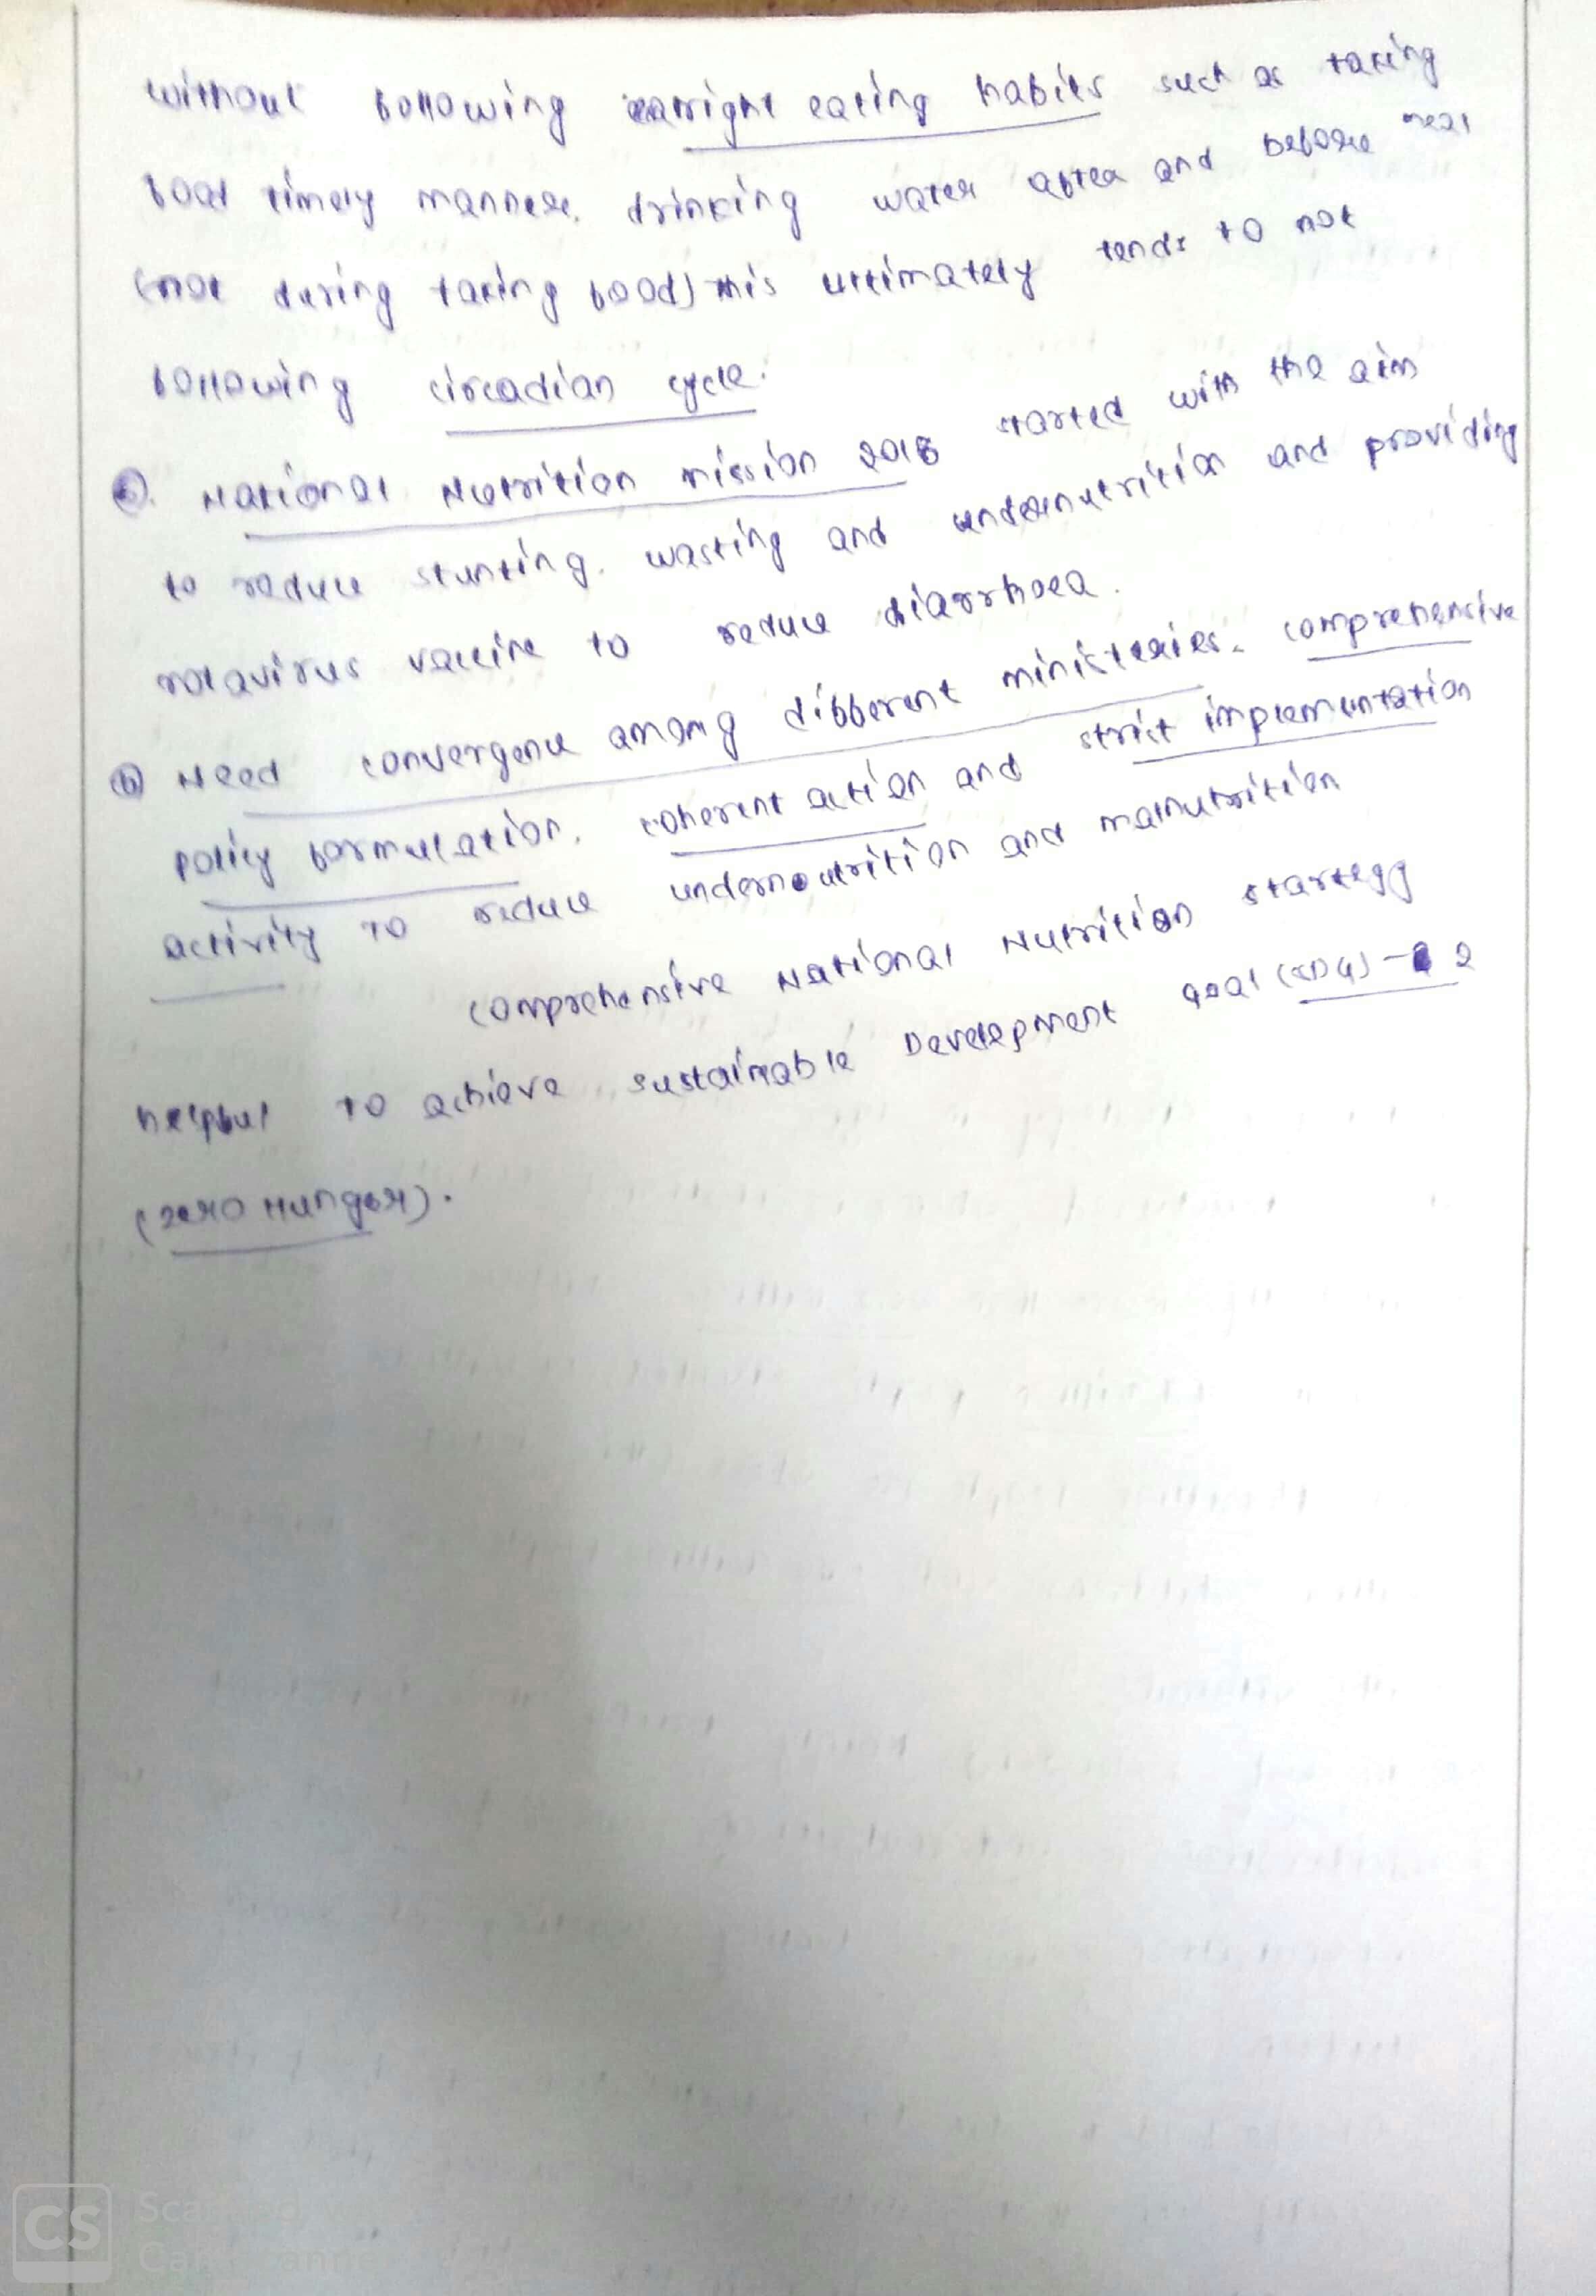 without following right eating habits such as taking
food timely manner, drinking water after and before meal
(not during taking food) this ultimately tends to not
following circadian cycle.
⑤. National Nutrition mission 2018 started with the aim
to reduce stunting, wasting and undernutrition and providing
rotavirus vaccine to reduce diarrhoea.
⑥ Need convergence among different ministeries, comprehensive
policy formulation, coherent action and strict implementation
activity to reduce undernoutrition and malnutrition
comprehensive National Nutrition startegy
helpful to achieve sustainable Development goal (SDG) - 2
(zero Hunger).
CS